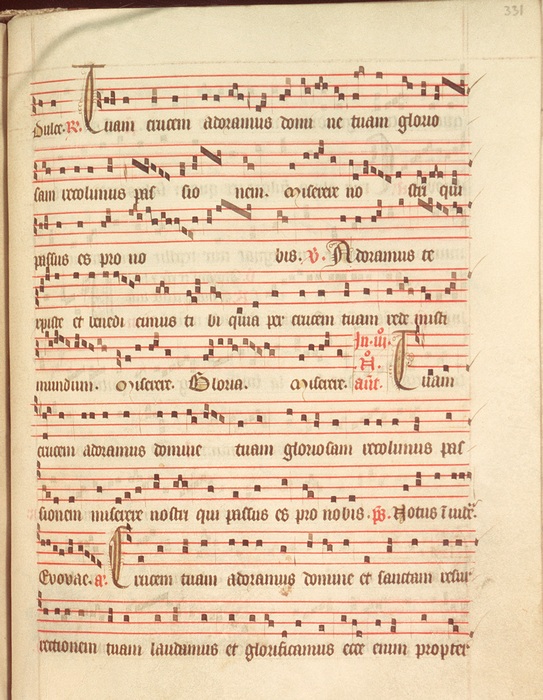 331
Dulce. R. Tuam crucem adoramus domi ne tuam glorio
sam recolimus pas sio nem. Miserere no stri qui
passus es pro no bis. V. Adoramus te
xpiste et benedi cimus ti bi quia per crucem tuam rede misti
mundum. Miserere. Gloria. Miserere. In. iii. N. añe. Tuam
crucem adoramus domine tuam gloriosam recolimus pas
sionem miserere nostri qui passus es pro nobis. ps. Notus
Evovae. a. Crucem tuam adoramus domine et sanctam resur
rectionem tuam laudamus et glorificamus ecce enim propter